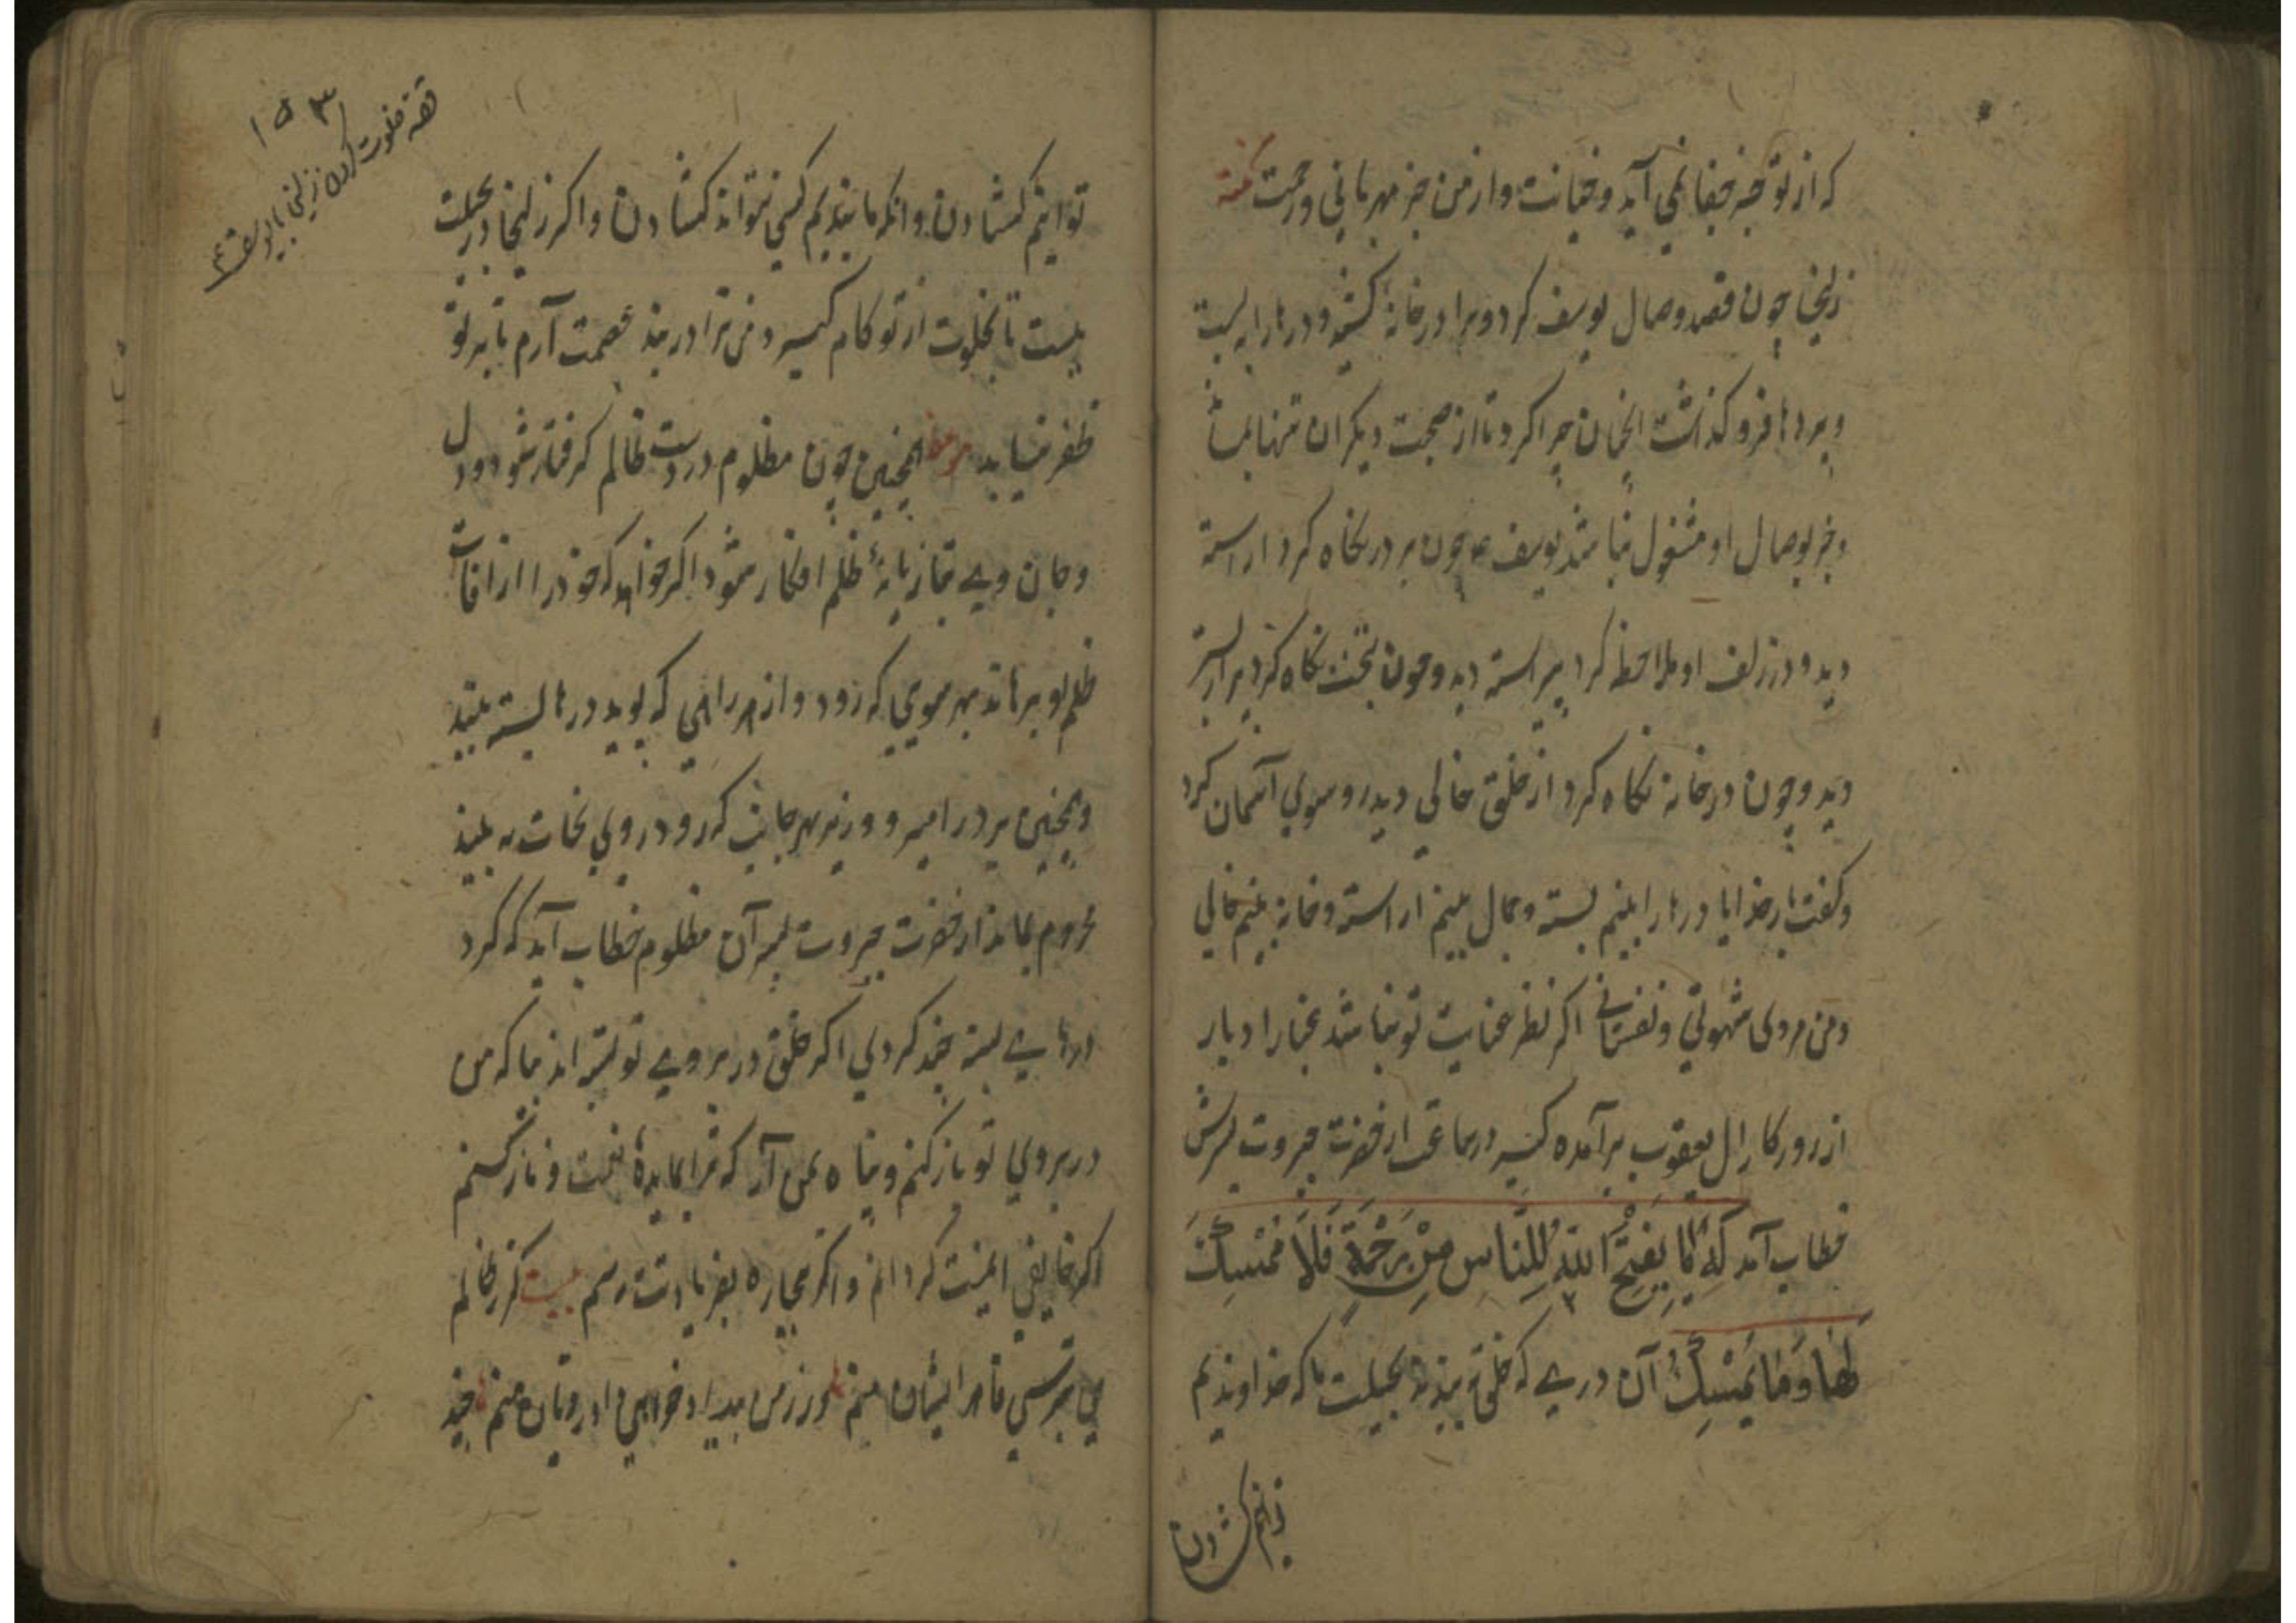 که از تو جز جفا نمی آید و خیانت و از من جز مهربانی و رحمت نکته
زلیخا چون قصد وصال یوسف کرد ویرا در خانه کشید و درها را به بست
و پردها فرو گذاشت انچنان چرا کرد تا از صحبت دیکران تنها باشد
و جز بوصال او مشغول نباشد یوسف ع چون بر در نکاه کرد اراسته
دید و در زلف او ملاحظه کرد پیراسته دید و چون بتخت نکاه کرد پر از بستر
دید و چون در خانه نکاه کرد از خلق خالی دید رو سوی آسمان کرد
و کفت بار خدایا درها را بینم بسته و جمال بینم اراسته و خانه بینم خالی
و من مردی شهوتی و نفسانی اکر نظر عنایت تو نباشد غبار ادبار
از روزکار ال یعقوب برآمده کیر در ساعت از حضرت جبروت بسرش
خطاب آمد که مَا يَفْتَحِ اللهُ لِلنَّاسِ مِنْ رَحْمَةٍ فَلَا مُمْسِكَ
لَهَا وَمَا يُمْسِكْ آن دری که خلق به بندند بحیلت ما که خداوندیم
توانیم کشادن
۱۵۳
قصه خلوت کردن زلیخا با یوسف ع
توانیم کشادن و انکه ما بندیم کسی نتواند کشادن و اکر زلیخا در بحیلت
ببست تا بخلوت از تو کام کیرد من ترا در بند عصمت آرم تا بر تو
ظفر نیابد موعظه همچنین چون مظلوم در دست ظالم کرفتار شود و دل
و جان وی بتازیانهٔ ظلم افکار شود اکر خواهد که خود را از افات
ظلم او برهاند بهر سویی که رود و از هر راهی که پوید درها بسته بیند
و همچنین بر در امیر و وزیر بهر جانب که رود روی نجات نه بیند
محروم بماند از حضرت جبروت بسر آن مظلوم خطاب آید که کرد
درهای بسته چند کردی اکر خلق در بر روی تو بستند بیا که من
در بر روی تو باز کنم و پناه بمن آر که ترا بمایدهٔ نعمت و ناز کشم
اکر خایفی ایمنت کردانم و اکر بیچاره بفریادت رسم بیت کر ز ظالم
می بترسی قاهر ایشان منم ور ز من بیداد خواهی داد رویان منم چند